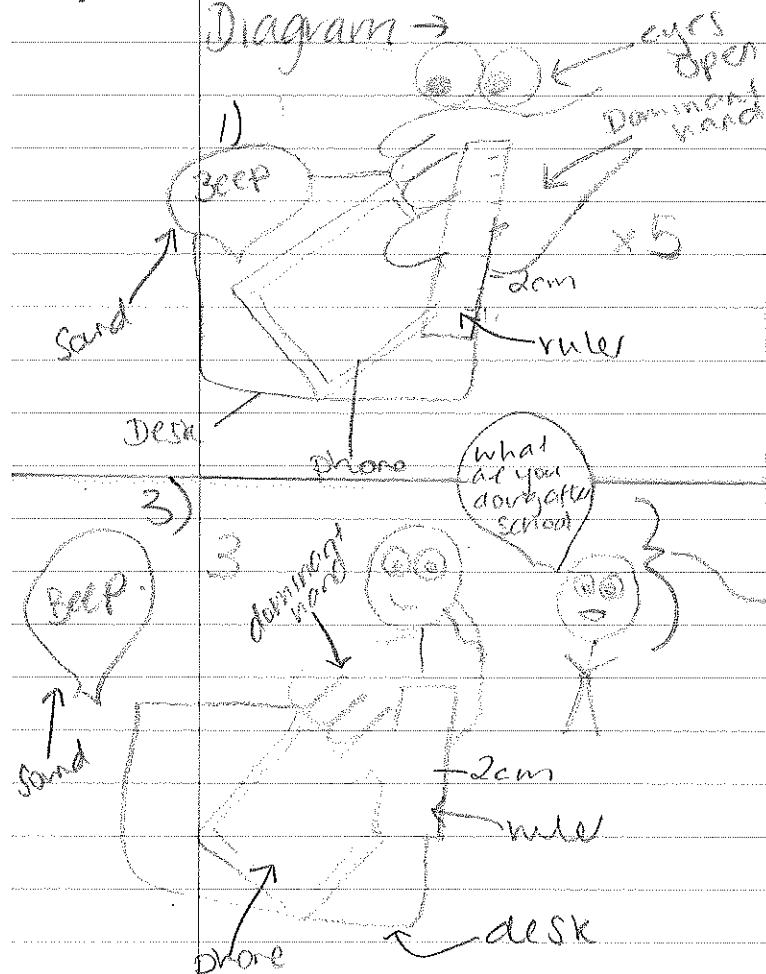 Diagram →
eyes
open
Dominant
hand
1)
Beep
x 5
2cm
Sound
ruler
Desk
phone
what
are you
doing after
school
3)
3
Beep.
dominant
hand
Sound
2cm
ruler
desk
phone